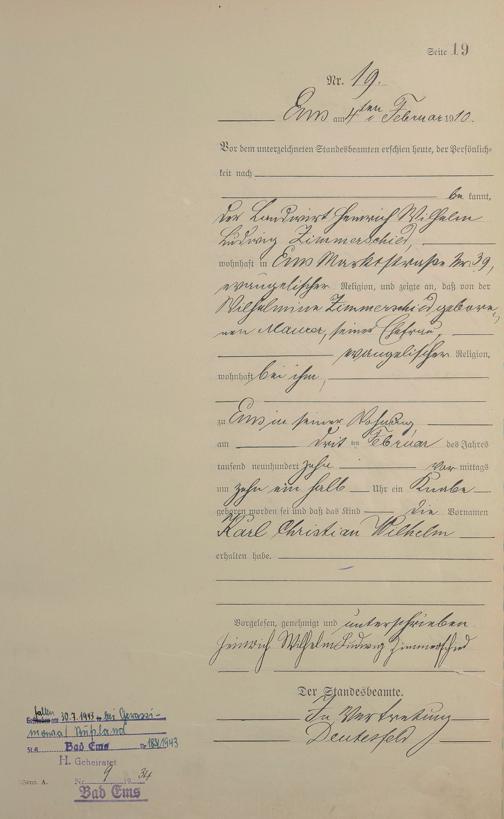 Seite 19
Nr. 19.
Ems am 4ten Februar 1910.
Vor dem unterzeichneten Standesbeamten erschien heute, der Persönlich-
keit nach
be kannt,
der Landwirt Heinrich Wilhelm
Ludwig Zimmerschied,
wohnhaft in Ems Marktstraße Nr. 39,
evangelischer Religion, und zeigte an, daß von der
Wilhelmine Zimmerschied, gebore-
nen Maurer, seiner Ehefrau,
evangelischer Religion,
wohnhaft bei ihm,
zu Ems in seiner Wohnung
am dritten Februar des Jahres
tausend neunhundert zehn Vor mittags
um zehn ein halb Uhr ein Knabe
geboren worden sei und daß das Kind die Vornamen
Karl Christian Wilhelm
erhalten habe.
Vorgelesen, genehmigt und unterschrieben
Heinrich Wilhelm Ludwig Zimmerschied
Der Standesbeamte.
In Vertretung
gefallen am 30.7.1943 bei
/ Rußland
Bad Ems Nr. 1943
H. Geheiratet
A. Nr. 9 1934
Bad Ems